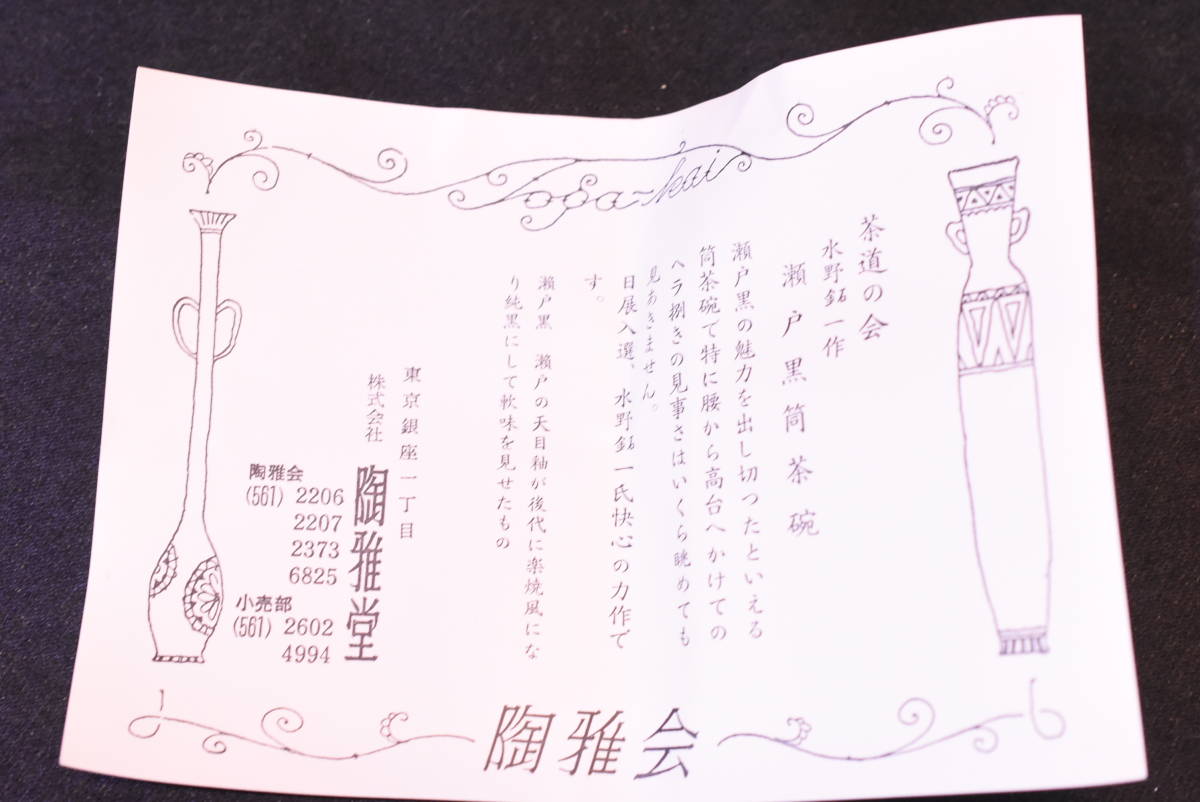 Toga-kai
茶道の会
水野鉐一作
瀬戸黒筒茶碗
瀬戸黒の魅力を出し切つたといえる
筒茶碗で特に腰から高台へかけての
ヘラ捌きの見事さはいくら眺めても
見あきません。
日展入選、水野鉐一氏快心の力作で
す。
瀬戸黒　瀬戸の天目釉が後代に楽焼風にな
り純黒にして軟味を見せたもの
東京銀座一丁目
株式会社 陶雅堂
陶雅会
(561) 2206
2207
2373
6825
小売部
(561) 2602
4994
陶雅会